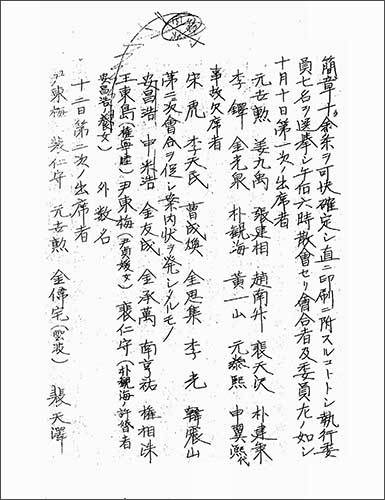 簡章十余条ヲ可決確定シ直ニ印刷ニ附スルコトトシ執行委
員七名ヲ選挙シ午后六時散會セリ會合者及委員左ノ如シ
十月十日第一次ノ出席者
元世勲 姜九禹 張建相 趙南升 裴天沢 朴建秉
李鐸 金光泉 朴観海 黄一山 元悳熙 申翼熙代
事故欠席者
宋虎 李天民 曹成煥 金思集 李光 韓震山
第二次會合ヲ促シ案内状ヲ発シタルモノ
安昌浩 申采浩 金友成 金承萬 南亨祐 権相洙
王東島 尹東梅 裴仁守(朴観海ノ許婚者
外数名
十二日第二次ノ出席者
尹東梅 裴仁守 元世勲 金偉宅(雲波) 裴天澤